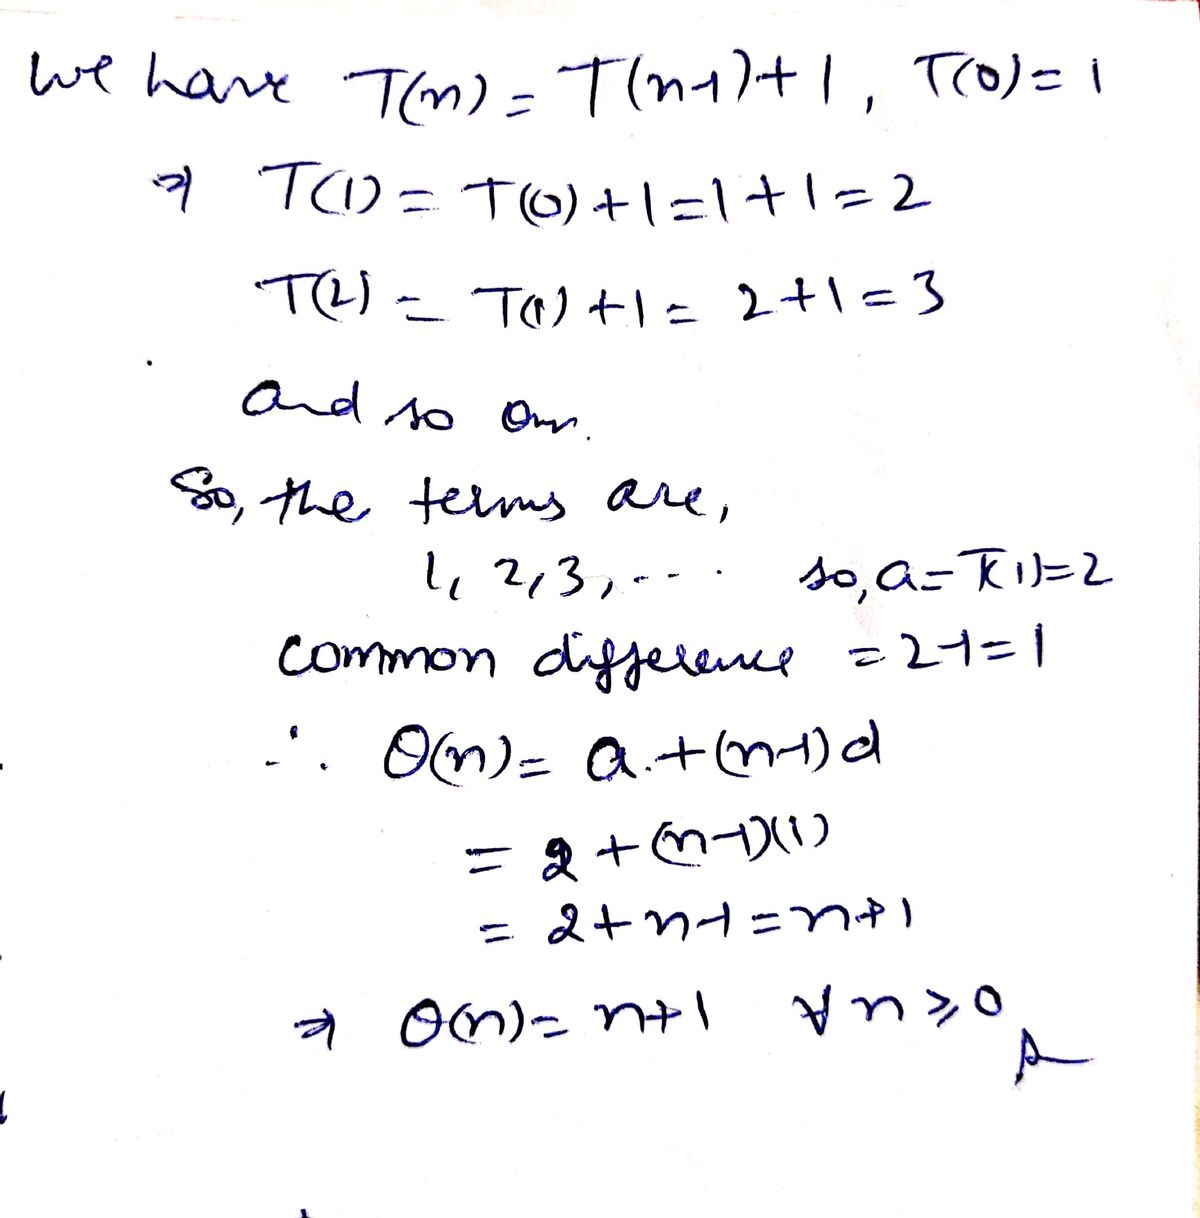 we have T(n) = T(n-1)+1, T(0)=1
⇒ T(1) = T(0)+1=1+1=2
T(2) = T(1)+1= 2+1=3
and so on.
So, the terms are,
1, 2, 3, ... so, a=T(1)=2
common difference =2-1=1
∴ θ(n)= a.+(n-1)d
= 2+(n-1)(1)
= 2+n-1=n+1
⇒ θ(n)= n+1 ∀ n⩾0